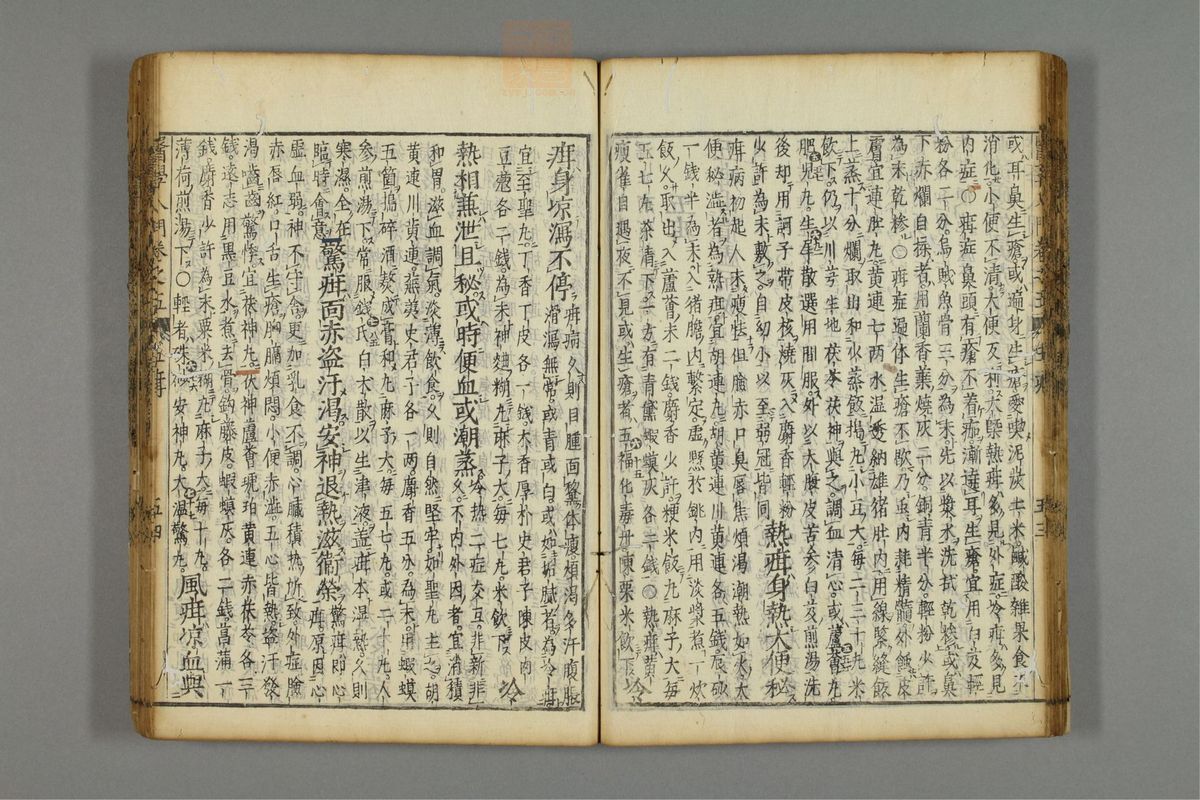 或耳臭生瘡或遍身生瘡愛喫泥炭土米鹹酸雜果食不
消化小便不清大便反利大槩熱疳多見外症冷疳多見
內症○疳症鼻頭有瘡不着痂漸遶耳生瘡宜用白芨輕
粉各二分烏賊魚骨三分為末先以漿水洗拭乾糝或臭
下赤爛自揉者用蘭香葉燒灰二分銅青半分輕粉少許
為末乾糝○疳症遍体生瘡不歇乃虫內耗精髓外餓皮
膚宜連肚丸黃連七兩水温透納雄猪肚內用線緊縫飯
上蒸十分爛取出和少蒸飯搗丸小豆大每二三十丸米
飲下仍以川芎生地茯苓茯神與之調血清心或蘆薈丸
肥兒丸生犀散選用間服外以大腹皮苦參白芨煎湯洗
後却用訶子帶皮核燒灰入麝香輕粉
少許為末敷之自幼小以至弱冠皆同熱疳身熱大便秘
疳病初起人未瘦怯但臉赤口臭唇焦煩渴潮熱如火大
便秘澁者為熱疳宜胡連丸胡黃連川黃連各五錢辰砂
一錢半為末入猪膽內繫定虛懸於銚內用淡漿煮一炊
飯久取出入蘆薈末二錢麝香少許粳米飯丸麻子大每
五七丸茶清下一方有青黛蝦蟆灰各二錢○熱疳黃
瘦雀目遇夜不見或生瘡者五福化毒丹陳粟米飲下冷
疳身凉瀉不停疳病久則目腫面黧体瘦煩渴多汗腹脹
滑瀉無常或青或白或如垢膩者為冷疳
宜至聖丸丁香丁皮各一錢木香厚朴史君子陳皮肉
豆蔻各二錢為末神麯糊丸麻子大每七丸米飲下冷
熱相兼泄且秘或時便血或潮蒸冷热二症交互非新非
久不內外因者宜消積
和胃滋血調氣淡薄飲食久則自然堅牢如聖丸主之胡
黃連川黃連蕪荑史君子各一兩麝香五分為末用蝦蟆
五箇搗碎酒熬成膏和丸麻子大每五七丸或二十丸人
參煎湯下常服錢氏白朮散以生津液盖疳本湿熱久則
寒濕全在
臨時會意驚疳面赤盗汗渴安神退熱滋衛榮驚疳即心
疳原因心
虛血弱神不守舍更加乳食不調心臟積热所致外症臉
赤唇紅口舌生瘡胸膈煩悶小便赤澁五心皆熱盗汗發
渴嚙齒驚悸宜茯神丸茯神蘆薈琥珀黃連赤茯苓各三
錢遠志用黑豆水煮去骨鈎藤皮蝦蟆灰各二錢菖蒲一
錢麝香少許為末粟米糊丸麻子大每十丸
薄荷煎湯下○輕者硃砂安神丸大温驚丸風疳凉血與
醫學入門卷之五
五四
五三